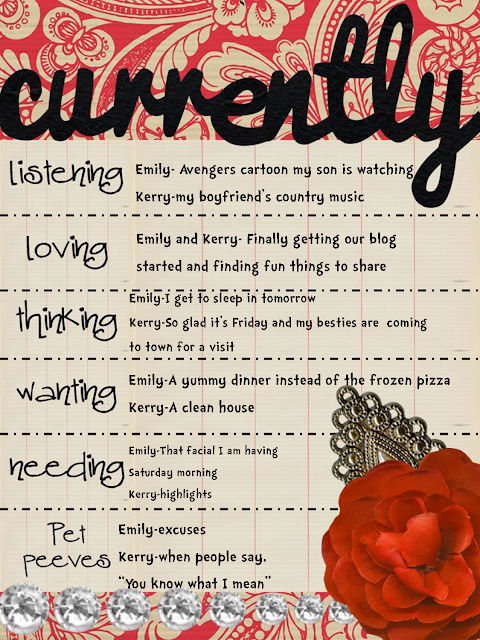 currently
listening
Emily- Avengers cartoon my son is watching
Kerry-my boyfriend's country music
loving
Emily and Kerry- Finally getting our blog
started and finding fun things to share
thinking
Emily-I get to sleep in tomorrow
Kerry-So glad it's Friday and my besties are coming
to town for a visit
wanting
Emily-A yummy dinner instead of the frozen pizza
Kerry-A clean house
needing
Emily-That facial I am having
Saturday morning
Kerry-highlights
Pet
peeves
Emily-excuses
Kerry-when people say,
"You know what I mean"